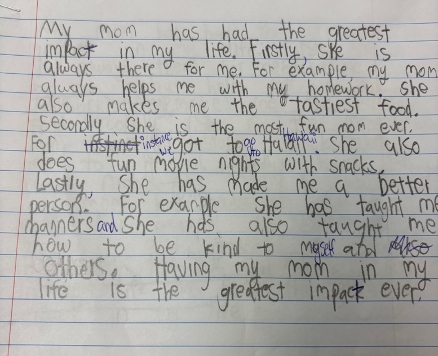 My mom has had the greatest
impact in my life. Firstly, she is
always there for me. For example my mom
always helps me with my homework. she
also makes me the tastiest food.
Secondly she is the most fun mom ever.
For instinct instance we got to go to Hawaii. She also
does fun movie nights with snacks.
Lastly, She has made me a better
person. For example She has taught me
manners and She has also taught me
how to be kind to myself and
others. Having my mom in my
life is the greatest impact ever.